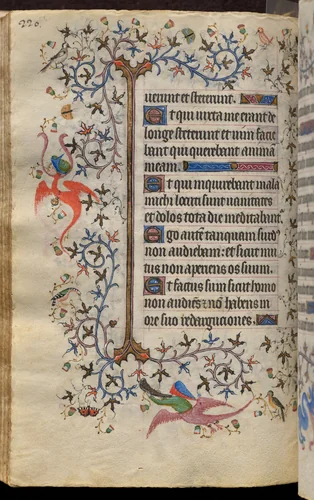 220.
uerunt et steterunt.
Et qui iuxta me erant de
longe steterunt et uim facie
bant qui querebant animā
meam.
Et qui inquirebant mala
michi locuti sunt uanitates
et dolos tota die meditabānt
Ego autē tanquam surdꝰ
non audiebam: et sicut mu
tus non aperiens os suum.
Et factus sum sicut homo
non audiēs ⁊ nō habens in
ore suo redarguciones.